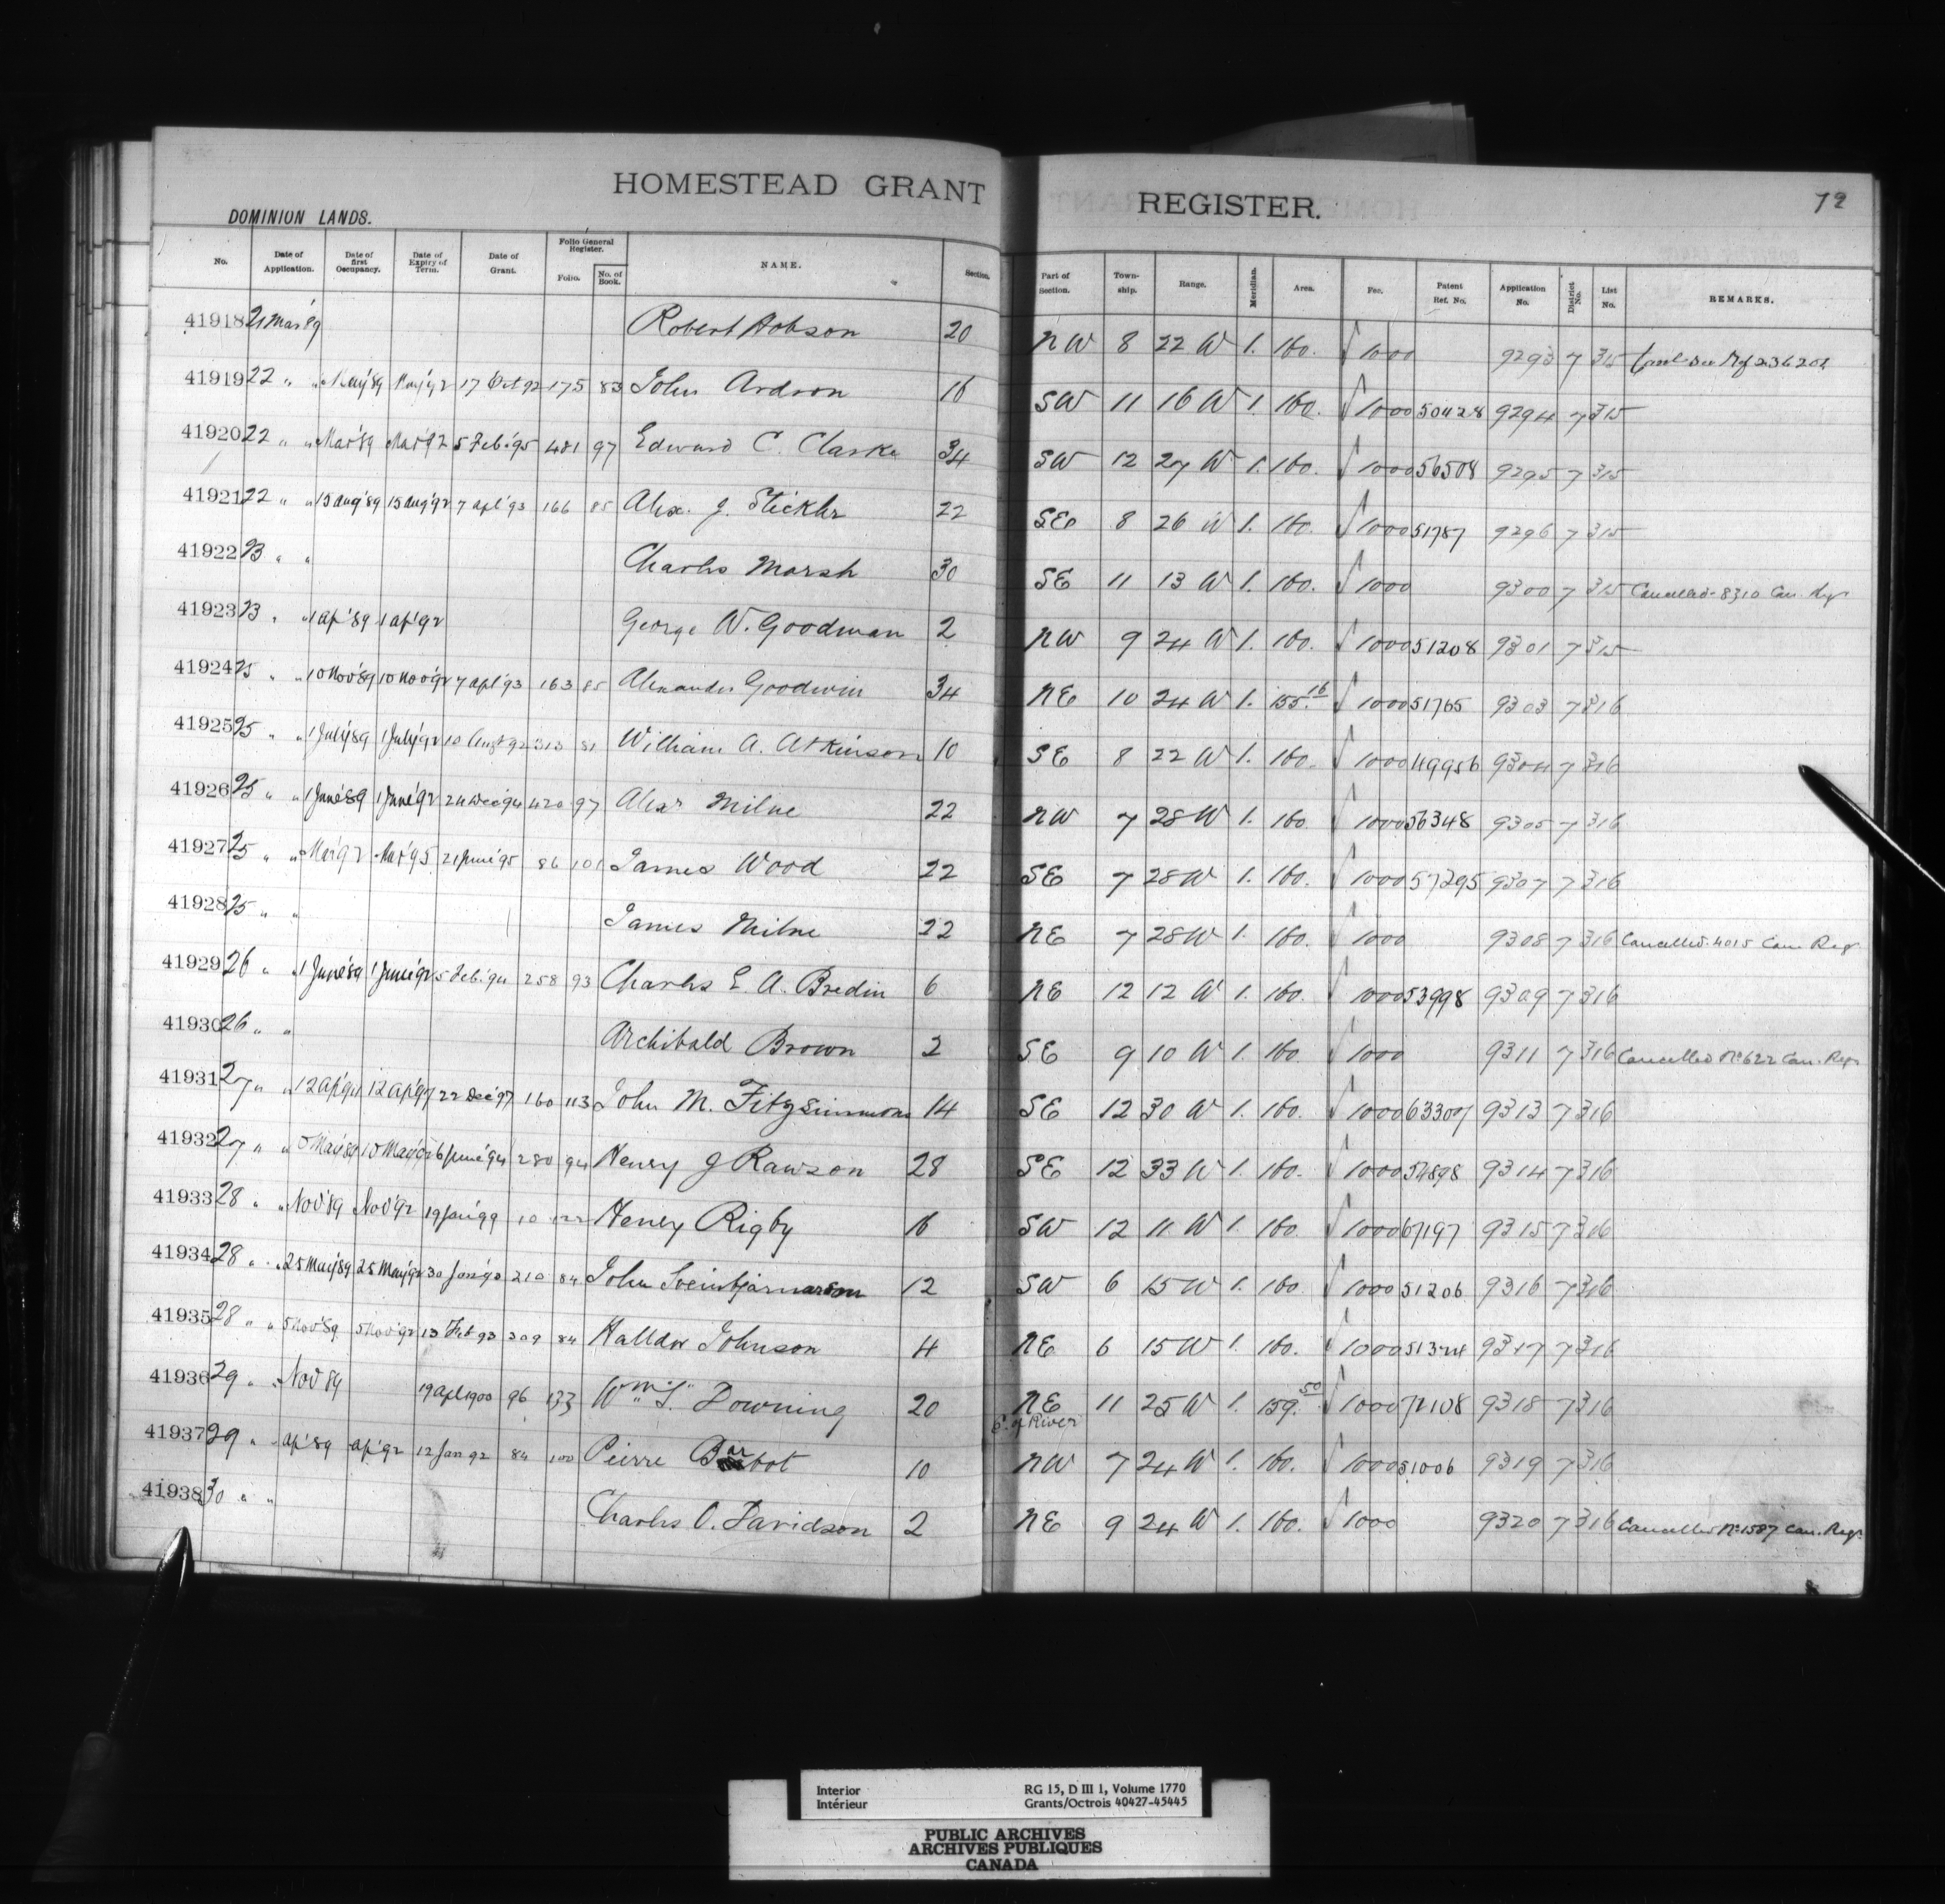 HOMESTEAD GRANT REGISTER. 72
DOMINION LANDS.
No. Date of Application. Date of first Occupancy. Date of Expiry of Term. Date of Grant. Folio General Register. Folio. No. of Book. NAME. Section. Part of Section. Township. Range. Meridian. Area. Fee. Patent Ref. No. Application No. District No. List No. REMARKS.
41918 21 Mar '89 Robert Hobson 20 NW 8 22 W 1. 160. 1000 9293 7 315
41919 22 " " May '89 May '92 17 Oct 92 175 83 John Ardron 16 SW 11 16 W 1 160. 1000 50428 9294 7 315
41920 22 " " Mar '89 Mar '92 5 Feb. '95 481 97 Edward C. Clarke 34 SW 12 27 W 1. 160. 1000 56508 9295 7 315
41921 22 " " 15 Aug '89 15 Aug '92 7 Apl '93 166 85 Alex. J. Stickle 22 SE 8 26 W 1. 160. 1000 51787 9296 7 315
41922 23 " " Charles Marsh 30 SE 11 13 W 1. 160. 1000 9300 7 315 Cancelled 8310 Can. Regr
41923 23 " " 1 Ap '89 1 Ap '92 George W. Goodman 2 NW 9 24 W 1. 160. 1000 51208 9301 7 315
41924 25 " " 10 Nov '89 10 Nov '92 7 Apl '93 163 85 Alexander Goodwin 34 NE 10 24 W 1. 155.16 1000 51765 9303 7 316
41925 25 " " 1 July '89 1 July '92 10 Augt 92 313 81 William A. Atkinson 10 SE 8 22 W 1. 160. 1000 49956 9304 7 316
41926 25 " " 1 June '89 1 June '92 24 Dec '94 420 97 Alexr Milne 22 NW 7 28 W 1. 160 1000 56348 9305 7 316
41927 25 " " Mar '92 Mar '95 21 June '95 86 101 James Wood 22 SE 7 28 W 1. 160. 1000 57295 9307 7 316
41928 25 " " James Milne 22 NE 7 28 W 1. 160. 1000 9308 7 316 Cancelled. 4015 Can Regr
41929 26 " " 1 June '89 1 June '92 5 Feb. '94 258 93 Charles E. A. Bredin 6 NE 12 12 W 1. 160. 1000 53998 9309 7 316
41930 26 " " Archibald Brown 2 SE 9 10 W 1. 160. 1000 9311 7 316 Cancelled No 622 Can. Regr
41931 27 " " 12 Ap '94 12 Ap '97 22 Dec '97 160 113 John M. Fitzsimmons 14 SE 12 30 W 1. 160. 1000 63307 9313 7 316
41932 27 " " 10 May '89 10 May '92 6 June '94 280 94 Henry J Rawson 28 SE 12 33 W 1. 160. 1000 54898 9314 7 316
41933 28 " " Nov '89 Nov '92 19 Jan '99 10 122 Henry Rigby 16 SW 12 11 W 1. 160. 1000 67197 9315 7 316
41934 28 " " 25 May '89 25 May '92 30 Jan '93 210 84 John Sveinbjarnarson 12 SW 6 15 W 1. 160. 1000 51206 9316 7 316
41935 28 " " 5 Nov '89 5 Nov '92 13 Feb 93 309 84 Halldor Johnson 4 NE 6 15 W 1. 160. 1000 51324 9317 7 316
41936 29 " " Nov 89 19 Apl 1900 96 133 Wm S. Downing 20 NE E. of River 11 25 W 1. 159.50 1000 72108 9318 7 316
41937 29 " " Ap '89 Ap '92 12 Jan 92 84 100 Pierre Barbot 10 NW 7 24 W 1. 160. 1000 51006 9319 7 316
41938 30 " " Charles O. Davidson 2 NE 9 24 W 1. 160. 1000 9320 7 316 Cancelled No 1587 Can. Regr
Interior RG 15, D III 1, Volume 1770
Intérieur Grants/Octrois 40427-45445
PUBLIC ARCHIVES
ARCHIVES PUBLIQUES
CANADA